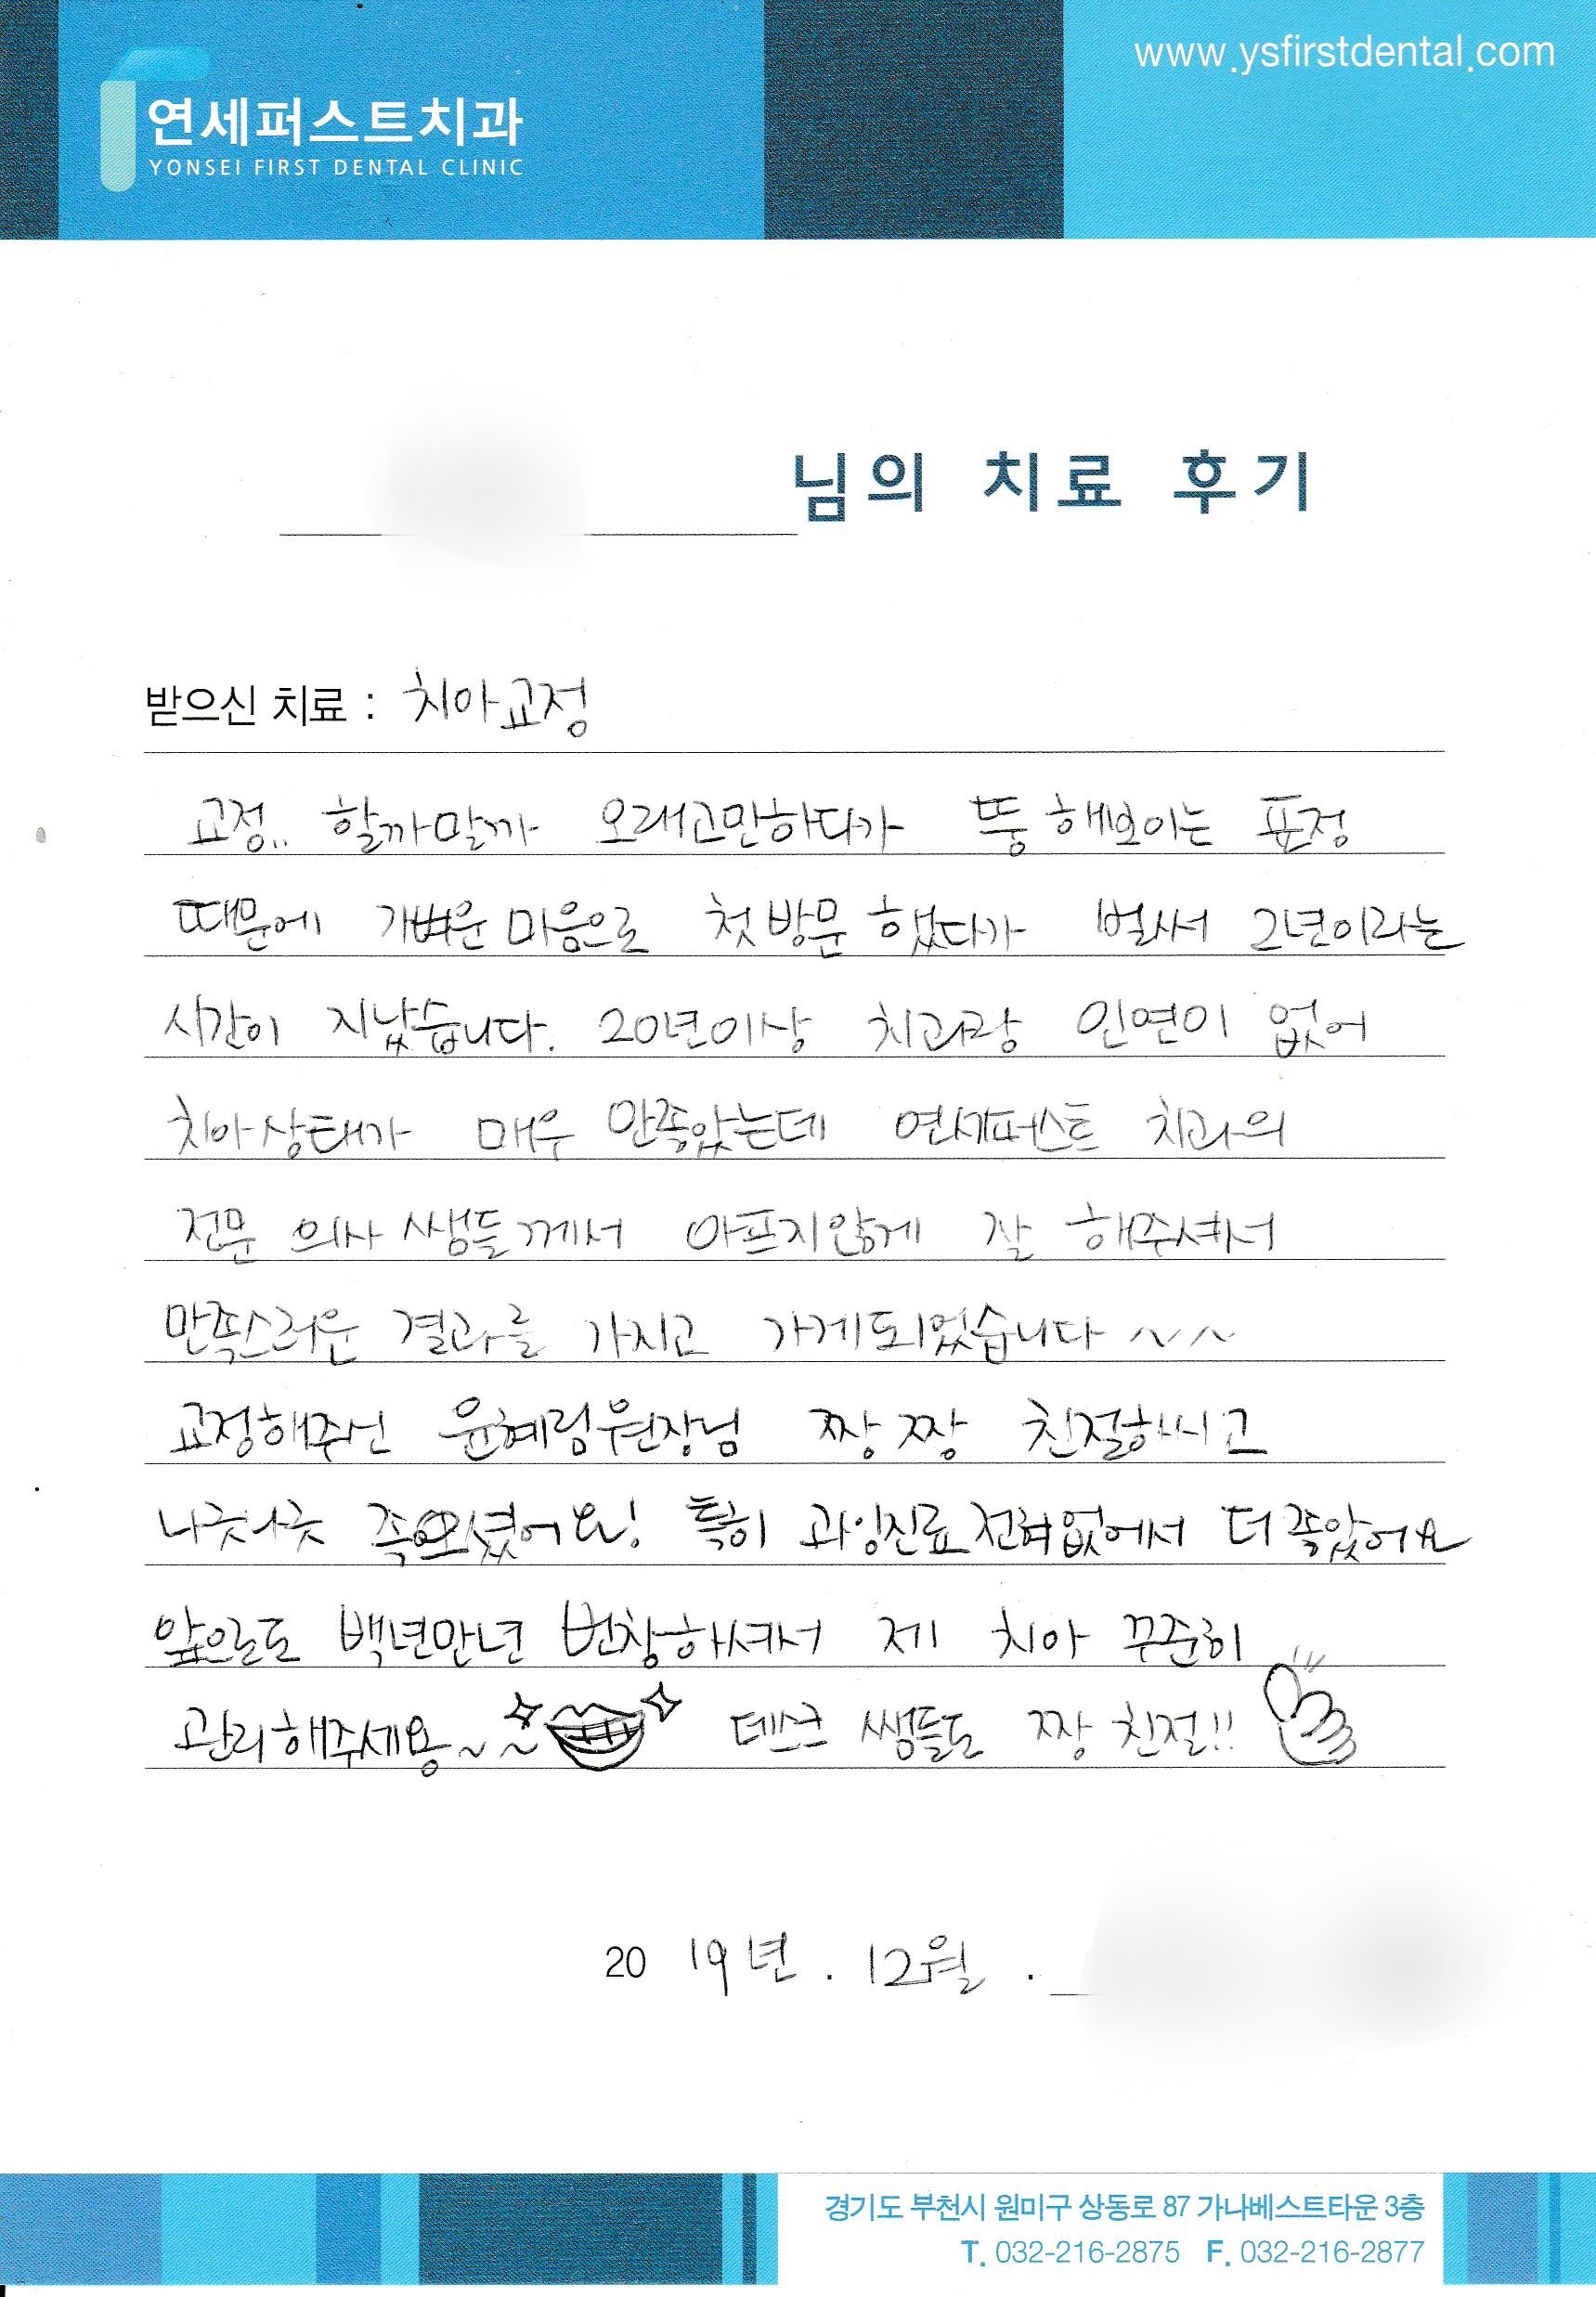 www.ysfirstdental.com
연세퍼스트치과
YONSEI FIRST DENTAL CLINIC
님의 치료 후기
받으신 치료 : 치아교정
교정.. 할까말까 오래고만하다가 뚱해보이는 표정
때문에 가벼운 마음으로 첫방문 했다가 벌써 2년이라는
시간이 지났습니다. 20년이상 치과랑 인연이 없어
치아상태가 매우 안좋았는데 연세퍼스트 치과의
전문 의사 쌤들께서 아프지않게 잘 해주셔서
만족스러운 결과를 가지고 가게되었습니다 ~~
교정해주신 윤혜림원장님 짱짱 친절하시고
나긋나긋 특히 과잉진료전혀없어서 더 좋았어요
앞으로도 백년만년 번창하셔서 제 치아 꾸준히
관리해주세용~~ 데스크 쌤들도 짱 친절!!
2019년 . 12월 .
경기도 부천시 원미구 상동로 87 가나베스트타운 3층
T. 032-216-2875 F. 032-216-2877